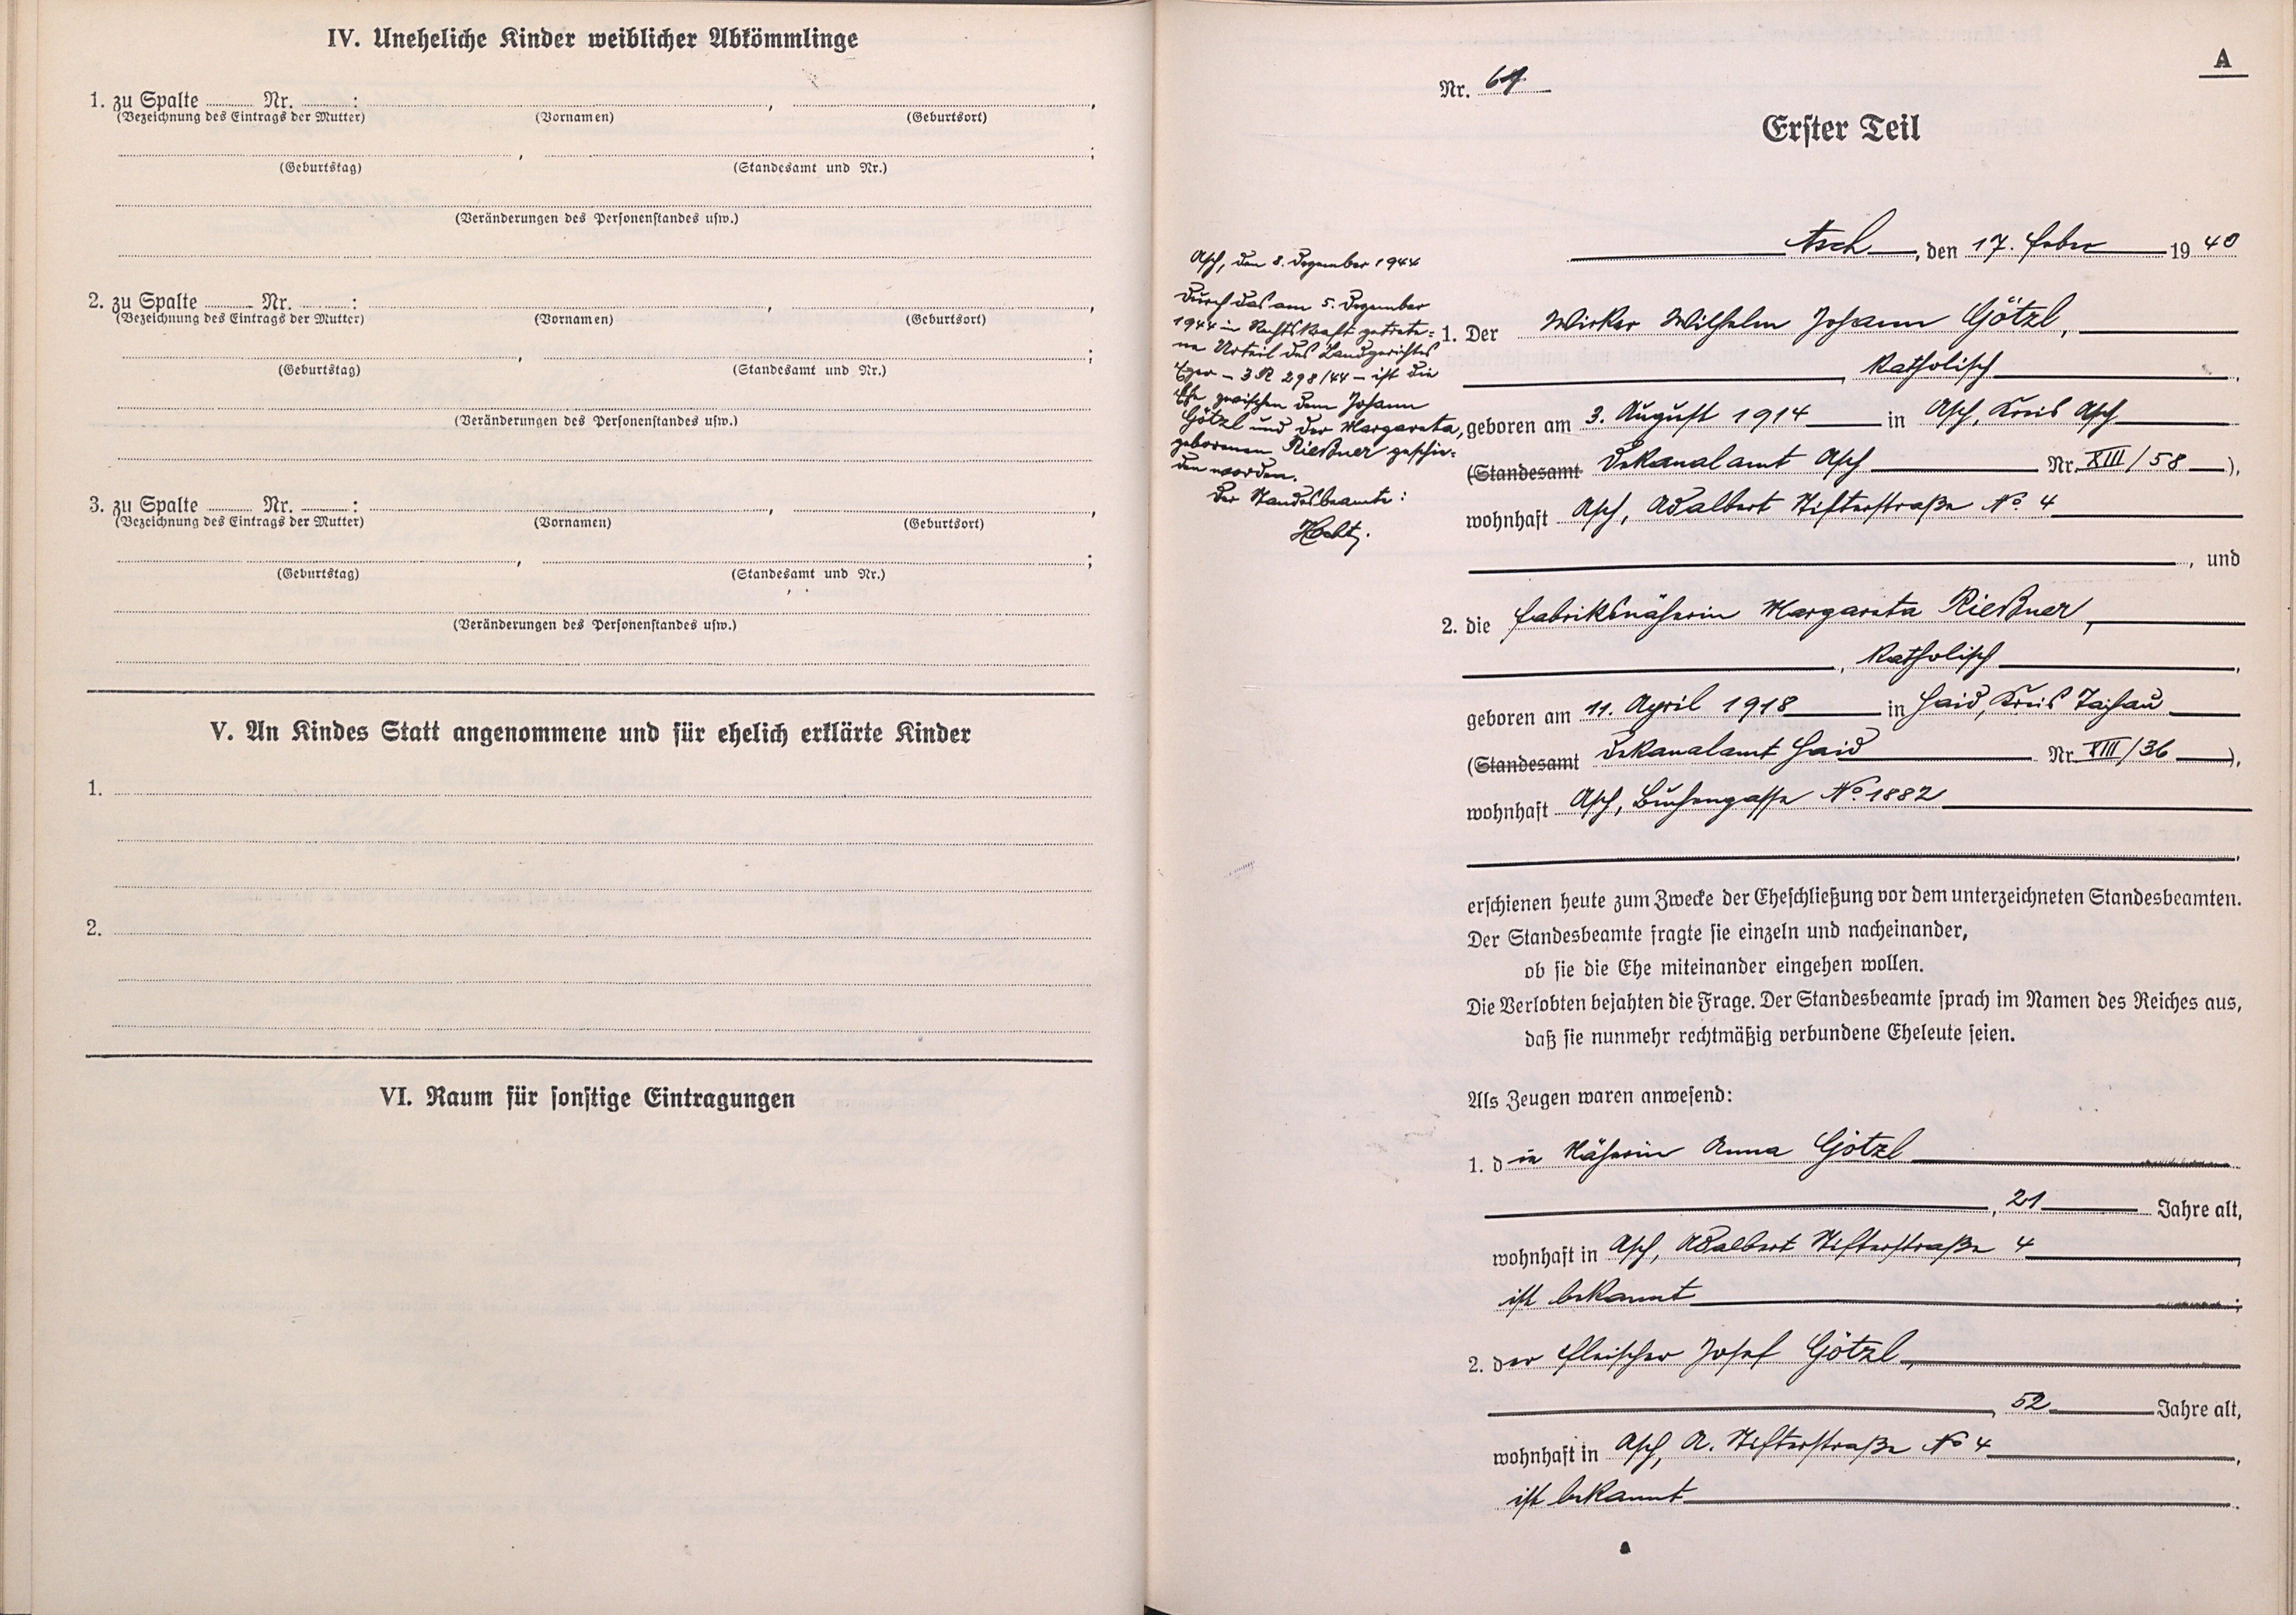 IV. Uneheliche Kinder weiblicher Abkömmlinge
1. zu Spalte ........ Nr. ........: ........, ........,
(Bezeichnung des Eintrags der Mutter) (Vornamen) (Geburtsort)
........, ........;
(Geburtstag) (Standesamt und Nr.)
(Veränderungen des Personenstandes usw.)
2. zu Spalte ........ Nr. ........: ........, ........,
(Bezeichnung des Eintrags der Mutter) (Vornamen) (Geburtsort)
........, ........;
(Geburtstag) (Standesamt und Nr.)
(Veränderungen des Personenstandes usw.)
3. zu Spalte ........ Nr. ........: ........, ........,
(Bezeichnung des Eintrags der Mutter) (Vornamen) (Geburtsort)
........, ........;
(Geburtstag) (Standesamt und Nr.)
(Veränderungen des Personenstandes usw.)
V. An Kindes Statt angenommene und für ehelich erklärte Kinder
1.
2.
VI. Raum für sonstige Eintragungen
A
Nr. 61
Erster Teil
Asch, den 17. Febr 1940
Asch, den 8. Dezember 1944
Durch das am 5. Dezember
1944 in Rechtskraft getrete=
ne Urteil des Landgerichtes
Eger – 3 R 298/44 – ist die
Ehe zwischen dem Johann
Götzl und der Margareta,
geborenen Rießner geschie=
den worden.
Der Standesbeamte:
1. Der Wirker Wilhelm Johann Götzl,
, katholisch,
geboren am 3. August 1914 in Asch, Kreis Asch
(Standesamt Dekanalamt Asch Nr. XIII/58),
wohnhaft Asch, Adalbert Stifterstraße No. 4
, und
2. die Fabriksnäherin Margareta Rießner,
, katholisch,
geboren am 11. April 1918 in Haid, Kreis Tachau
(Standesamt Dekanalamt Haid Nr. XIII/36),
wohnhaft Asch, Buchengasse No. 1882
,
erschienen heute zum Zwecke der Eheschließung vor dem unterzeichneten Standesbeamten.
Der Standesbeamte fragte sie einzeln und nacheinander,
ob sie die Ehe miteinander eingehen wollen.
Die Verlobten bejahten die Frage. Der Standesbeamte sprach im Namen des Reiches aus,
daß sie nunmehr rechtmäßig verbundene Eheleute seien.
Als Zeugen waren anwesend:
1. die Näherin Anna Götzl
, 21 Jahre alt,
wohnhaft in Asch, Adalbert Stifterstraße 4,
ist bekannt;
2. der Fleischer Josef Götzl,
, 52 Jahre alt,
wohnhaft in Asch, A. Stifterstraße No 4,
ist bekannt.